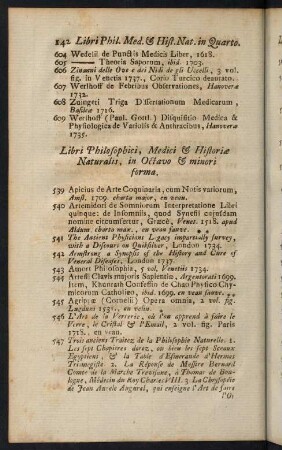 142 Libri Phil. Med. & Hist. Nat. in Quarto.
604 Wedelii de Punctis Medica Liber, 1628.
605 —— Theoria Saporum, ibid. 1703.
606 Zinanni delle Ova e dei Nidi de gli Uccelli, 3 vol.
fig. in Venetia 1737., Corio Turcico deaurato.
607 Werlhoff de Febribus Observationes, Hanoveræ
1732.
608 Zuingeri Triga Dissertationum Medicarum,
Basileæ 1716.
609 Werlhoff (Paul. Gottl.) Disquisitio Medica &
Physiologica de Variolis & Anthracibus, Hanoveræ
1735.
Libri Philosophici, Medici & Historiæ
Naturalis, in Octavo & minori
forma.
539 Apicius de Arte Coquinaria, cum Notis variorum,
Amst. 1709. charta major, en veau.
540 Artemidori de Somniorum Interpretatione Libri
quinque: de Insomnis, quod Synesii cujusdam
nomine circumfertur, Græcè, Venet. 1518. apud
Aldum charta max., en veau fauve.
541 The Ancient Physicians Legacy impartially survey,
with a Discours on Quiksilver, London 1734.
542 Armstrong a Synopsis of the History and Cure of
Veneral Diseases, London 1737.
543 Auneri Philosophia, 5 vol, Venetiis 1734.
544 Artefii Clavis majoris Sapientiæ, Argentorati 1699.
Item, Khunrath Confessio de Chao Physico Chy-
micorum Catholico, ibid. 1699. en veau fauve.
545 Agrippæ (Cornelii) Opera omnia, 2 vol. fig.
Lugduni 1531., en velin.
546 L'Art de la Verrerie, où l'on apprend à faire le
Verre, le Cristal & l'Email, 2 vol. fig. Paris
1718., en veau.
547 Trois anciens Traitez de la Philosophie Naturelle. 1.
Les sept Chapitres dorez, ou bien les sept Sceaux
Egyptiens, & la Table d'Esmeraude d'Hermes
Trismegiste. 2. La Réponse de Messire Bernard
Comte de la Marche Trevisane, à Thomas de Bou-
logne, Médecin du Roy Charles VIII. 3 La Chrysopée
de Jean Aurele Augurel, qui enseigne l'Art de faire
l'Or.